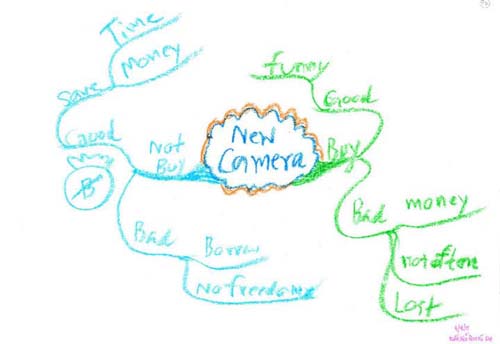 New
Camera
Not
Buy
Good
Save
Time
Money
Bad
Borrow
No freedom
Buy
Good
funny
Bad
money
not often
Lost